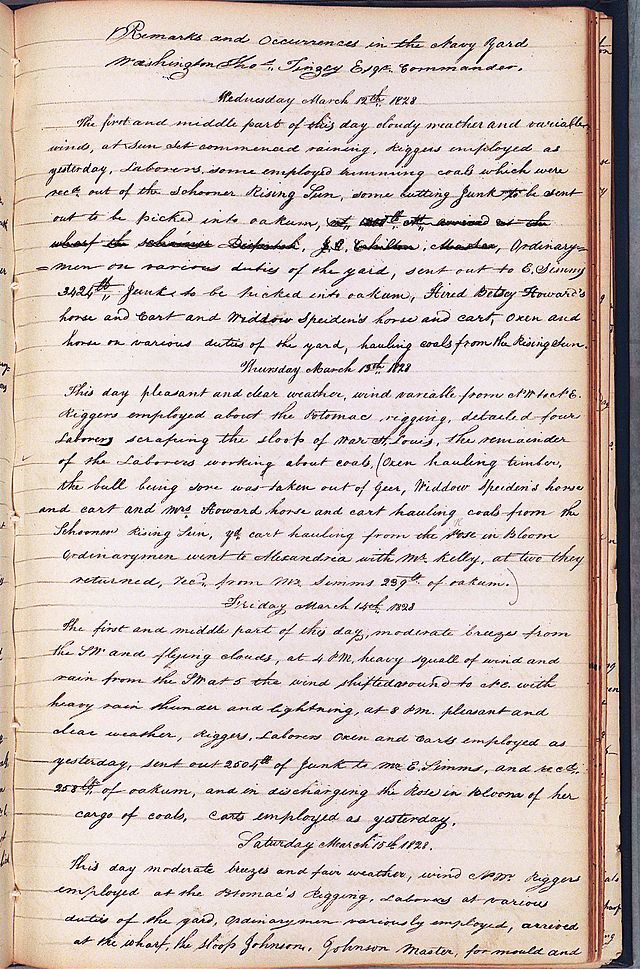 Remarks and Occurrences in the Navy Yard
Washington Thos. Tingey Esqr. Commander.
Wednesday March 12th 1828
The first and middle part of this day cloudy weather and variable
winds, at Sun Set commenced raining, Riggers employed as
yesterday, Laborers some employed trimming coals which were
recd. out of the Schooner Rising Sun, some cutting Junk to be sent
out to be picked into oakum, arrived at the
wharf the schooner Dispatch, Master, Ordinary=
=men on various duties of the yard, sent out to E. Simms
2424lb Junk to be picked into oakum, Hired Betsy Howard's
horse and Cart and Widdow Speiden's horse and cart, Oxen and
horse on various duties of the yard, hauling coals from the Rising Sun.
Thursday March 13th 1828
This day pleasant and clear weather, wind variable from NW to N.E.
Riggers employed about the Potomac rigging, detailed four
Laborers scraping the sloop of War St. Louis, the remainder
of the Laborers working about coals, (Oxen hauling timber,
the bull being sore was taken out of Geer, Widdow Speiden's horse
and cart and Mrs Howard horse and cart hauling coals from the
Schooner Rising Sun, yd. cart hauling from the Rose in Bloom
Ordinarymen went to Alexandria with Mr. Kelly, at two they
returned, recd. from Mr Simms 239lb of oakum.)
Friday March 14th 1828
The first and middle part of this day, moderate breezes from
the SW and flying clouds, at 4 P.M. heavy squall of wind and
rain from the SW at 5 the wind shifted around to N.E. with
heavy rain thunder and lightning, at 8 P.M. pleasant and
clear weather, Riggers, Laborers Oxen and Carts employed as
yesterday, sent out 2504lb of Junk to Mr E. Simms, and recd.
258lb, of oakum, and in discharging the Rose in Bloom of her
cargo of coals, Carts employed as yesterday.
Saturday March 15th 1828.
This day moderate breezes and fair weather, wind NW. Riggers
employed at the Potomac's Rigging, Laborers at various
duties of the yard, Ordinarymen variously employed, arrived
at the wharf, the sloop Johnson, Johnson Master, for mould and